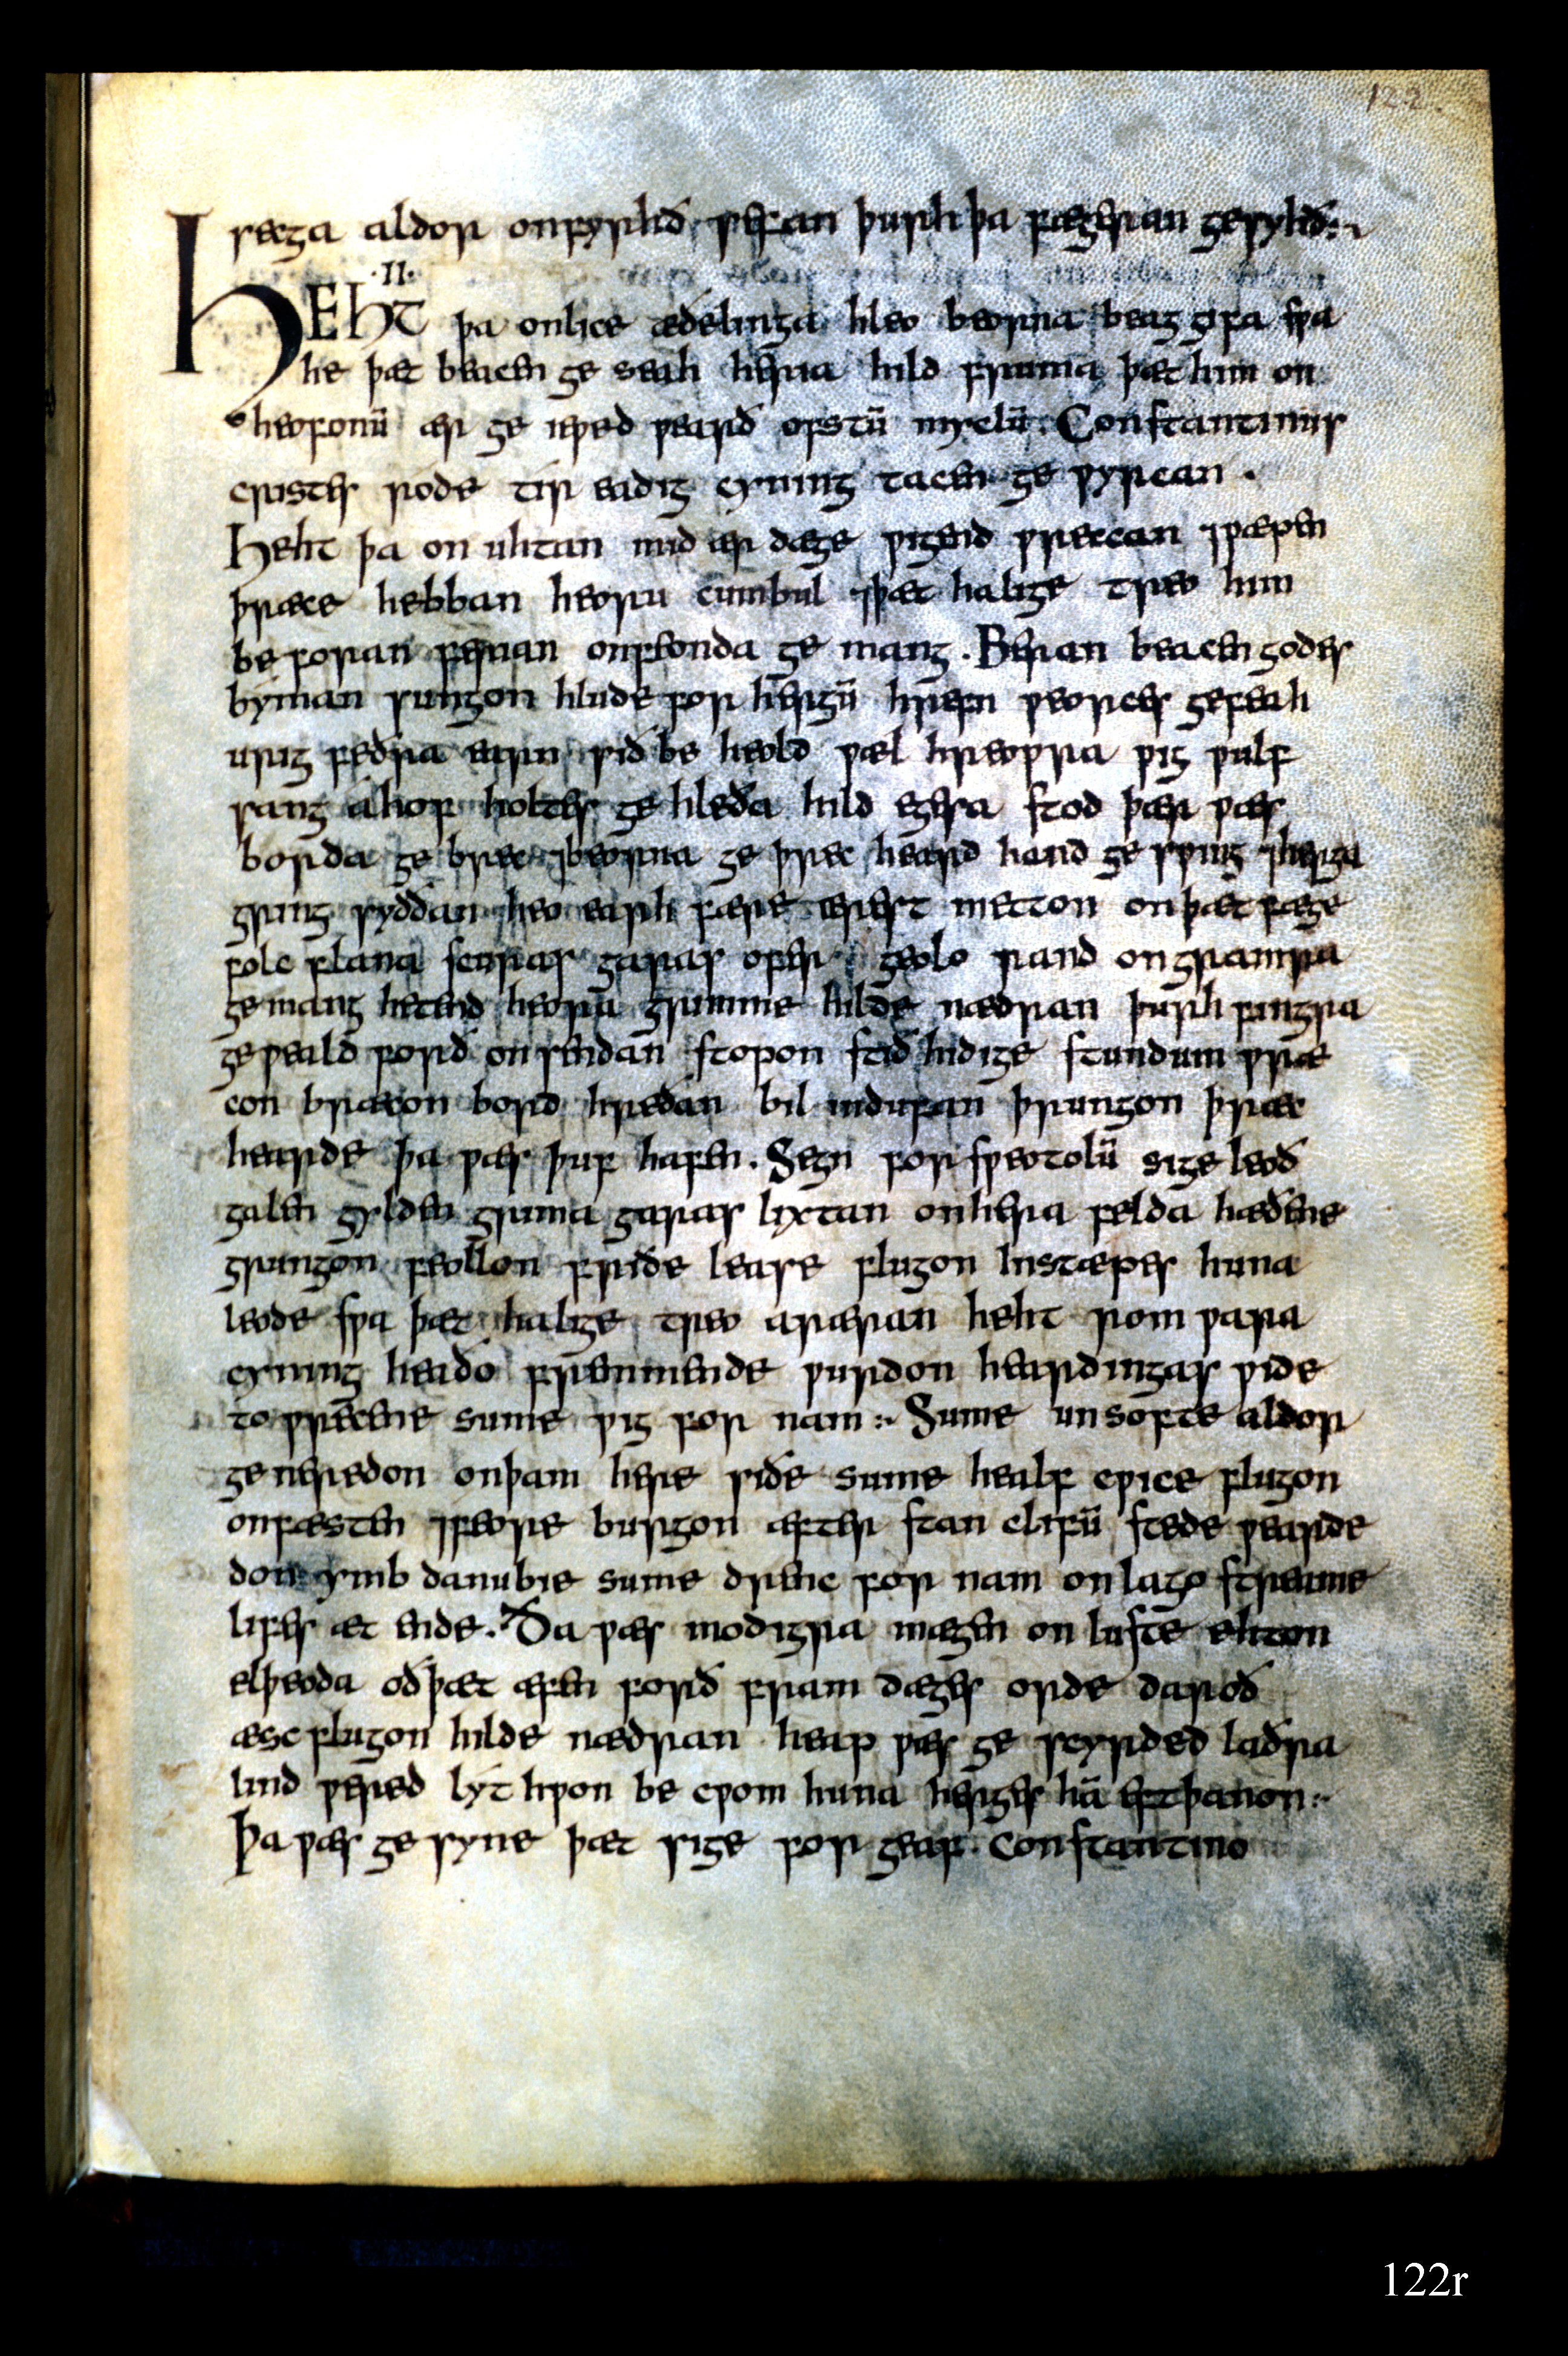 122.
secga aldor onfyrhð sefan þurh þa fægeran gesyhð:~
·II·
HEHT þa onlice æðelinga hleo beorna beag gifa sƿa
he þæt beacen ge seah heria hild fruma þæt him on
heofonū ær ge iewed ƿearð ofstū myclū. Constantinus
cristes rode tir eadig cyning tacen ge ƿyrcan .
Heht þa on uhtan mid ær dæge ƿigend ƿreccan ⁊ƿæpen
þræce hebban heoru cumbul ⁊þæt halige treo him
be foran ferian onfeonda ge mang . Beran beacen godes
byman sungon hlude for hergū hrefn ƿeorces gefeah
urig feðra earn sið be heold ƿæl hreoƿra ƿig ƿulf
sang ahof holtes ge hleða hild egesa stod þær ƿæs
borda ge brec ⁊beorna ge þrec heard hand ge sƿing ⁊herga
gring syððan heo earh fære ærest metton onþæt fæge
folc flana scuras garas ofer geolo rand ongramra
gemang hetend heoru grimme hilde nædran þurh fingra
geƿeald forð onsendan stopon stið hidige stundum ƿræ
con bræcon bord hreðan bil indufan þrungon þræc
hearde þa ƿæs þuf hafen. Segn for sƿeotolū sige leoð
galen gylden grima garas lixtan onherea felda hæðene
grungon feollon friðe lease flugon Instæpes huna
leode sƿa þæt halige treo aræran heht rom ƿara
cyning heaðo fremmende ƿurdon heardingas ƿide
to ƿrecene sume ƿig for nam :~ Sume un softe aldor
generedon onþam here siðe sume healf cƿice flugon
onfæsten ⁊feore burgon æfter stan clifū stede ƿearde
don ymb danubie sume drenc for nam on lago streame
lifes æt ende. Ða ƿæs modigra mægen on luste ehton
elþeoda oðþæt æfen forð fram dæges orde daroð
æsc flugon hilde nædran heap ƿæs ge scyrded laðra
lind ƿered lyt hƿon be cƿom huna herges hā eft þanon:~
Þa ƿæs ge syne þæt sige for geaf constantino
122r